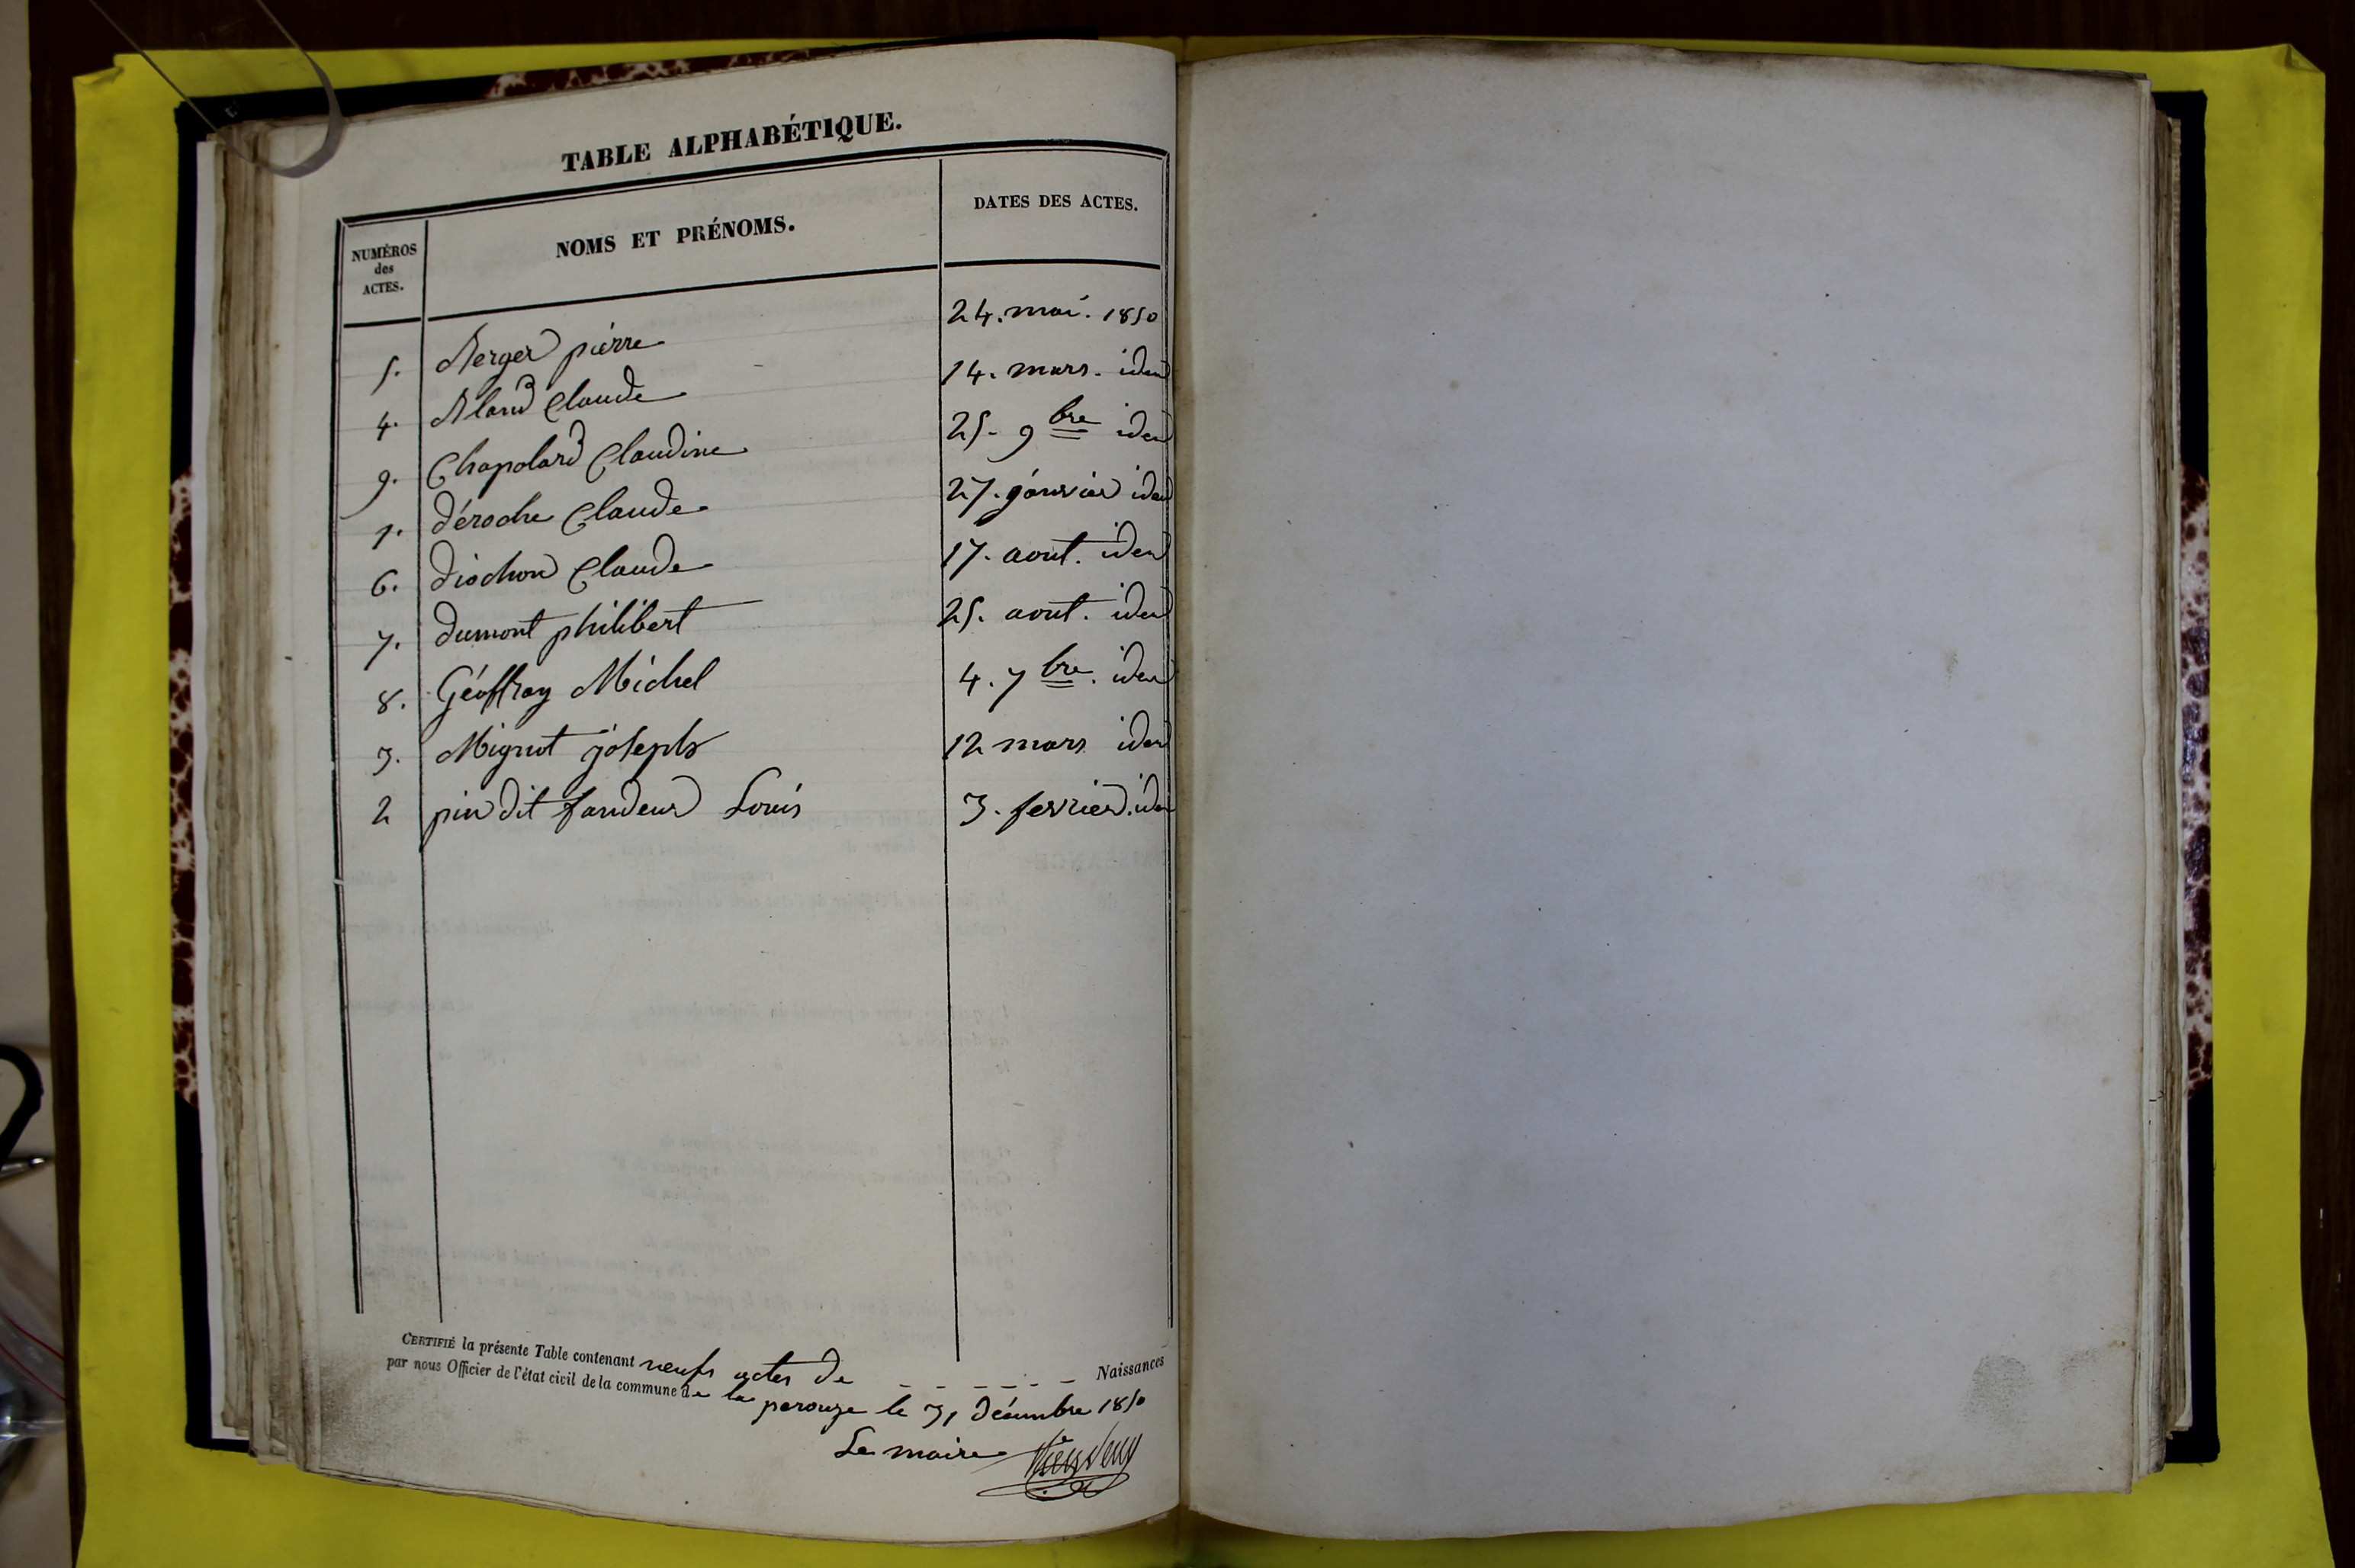 TABLE ALPHABÉTIQUE.
NUMÉROS des ACTES. NOMS ET PRÉNOMS. DATES DES ACTES.
5. Berger pierre 24. mai. 1850
4. Bland Claude 14. mars. idem
9. Chapolard Claudine 25. 9bre idem
1. déroche Claude 27. janvier idem
6. diochon Claude 17. aout. idem
7. dumont philibert 25. aout. idem
8. Géoffray Michel 4. 7bre. idem
3. Mignot joseph 12 mars idem
2 pin dit fandeur Louis 3. fevrier. idem
CERTIFIÉ la présente Table contenant neufs actes de Naissances
par nous Officier de l'état civil de la commune de la perouze le 31 décembre 1850
Le maire